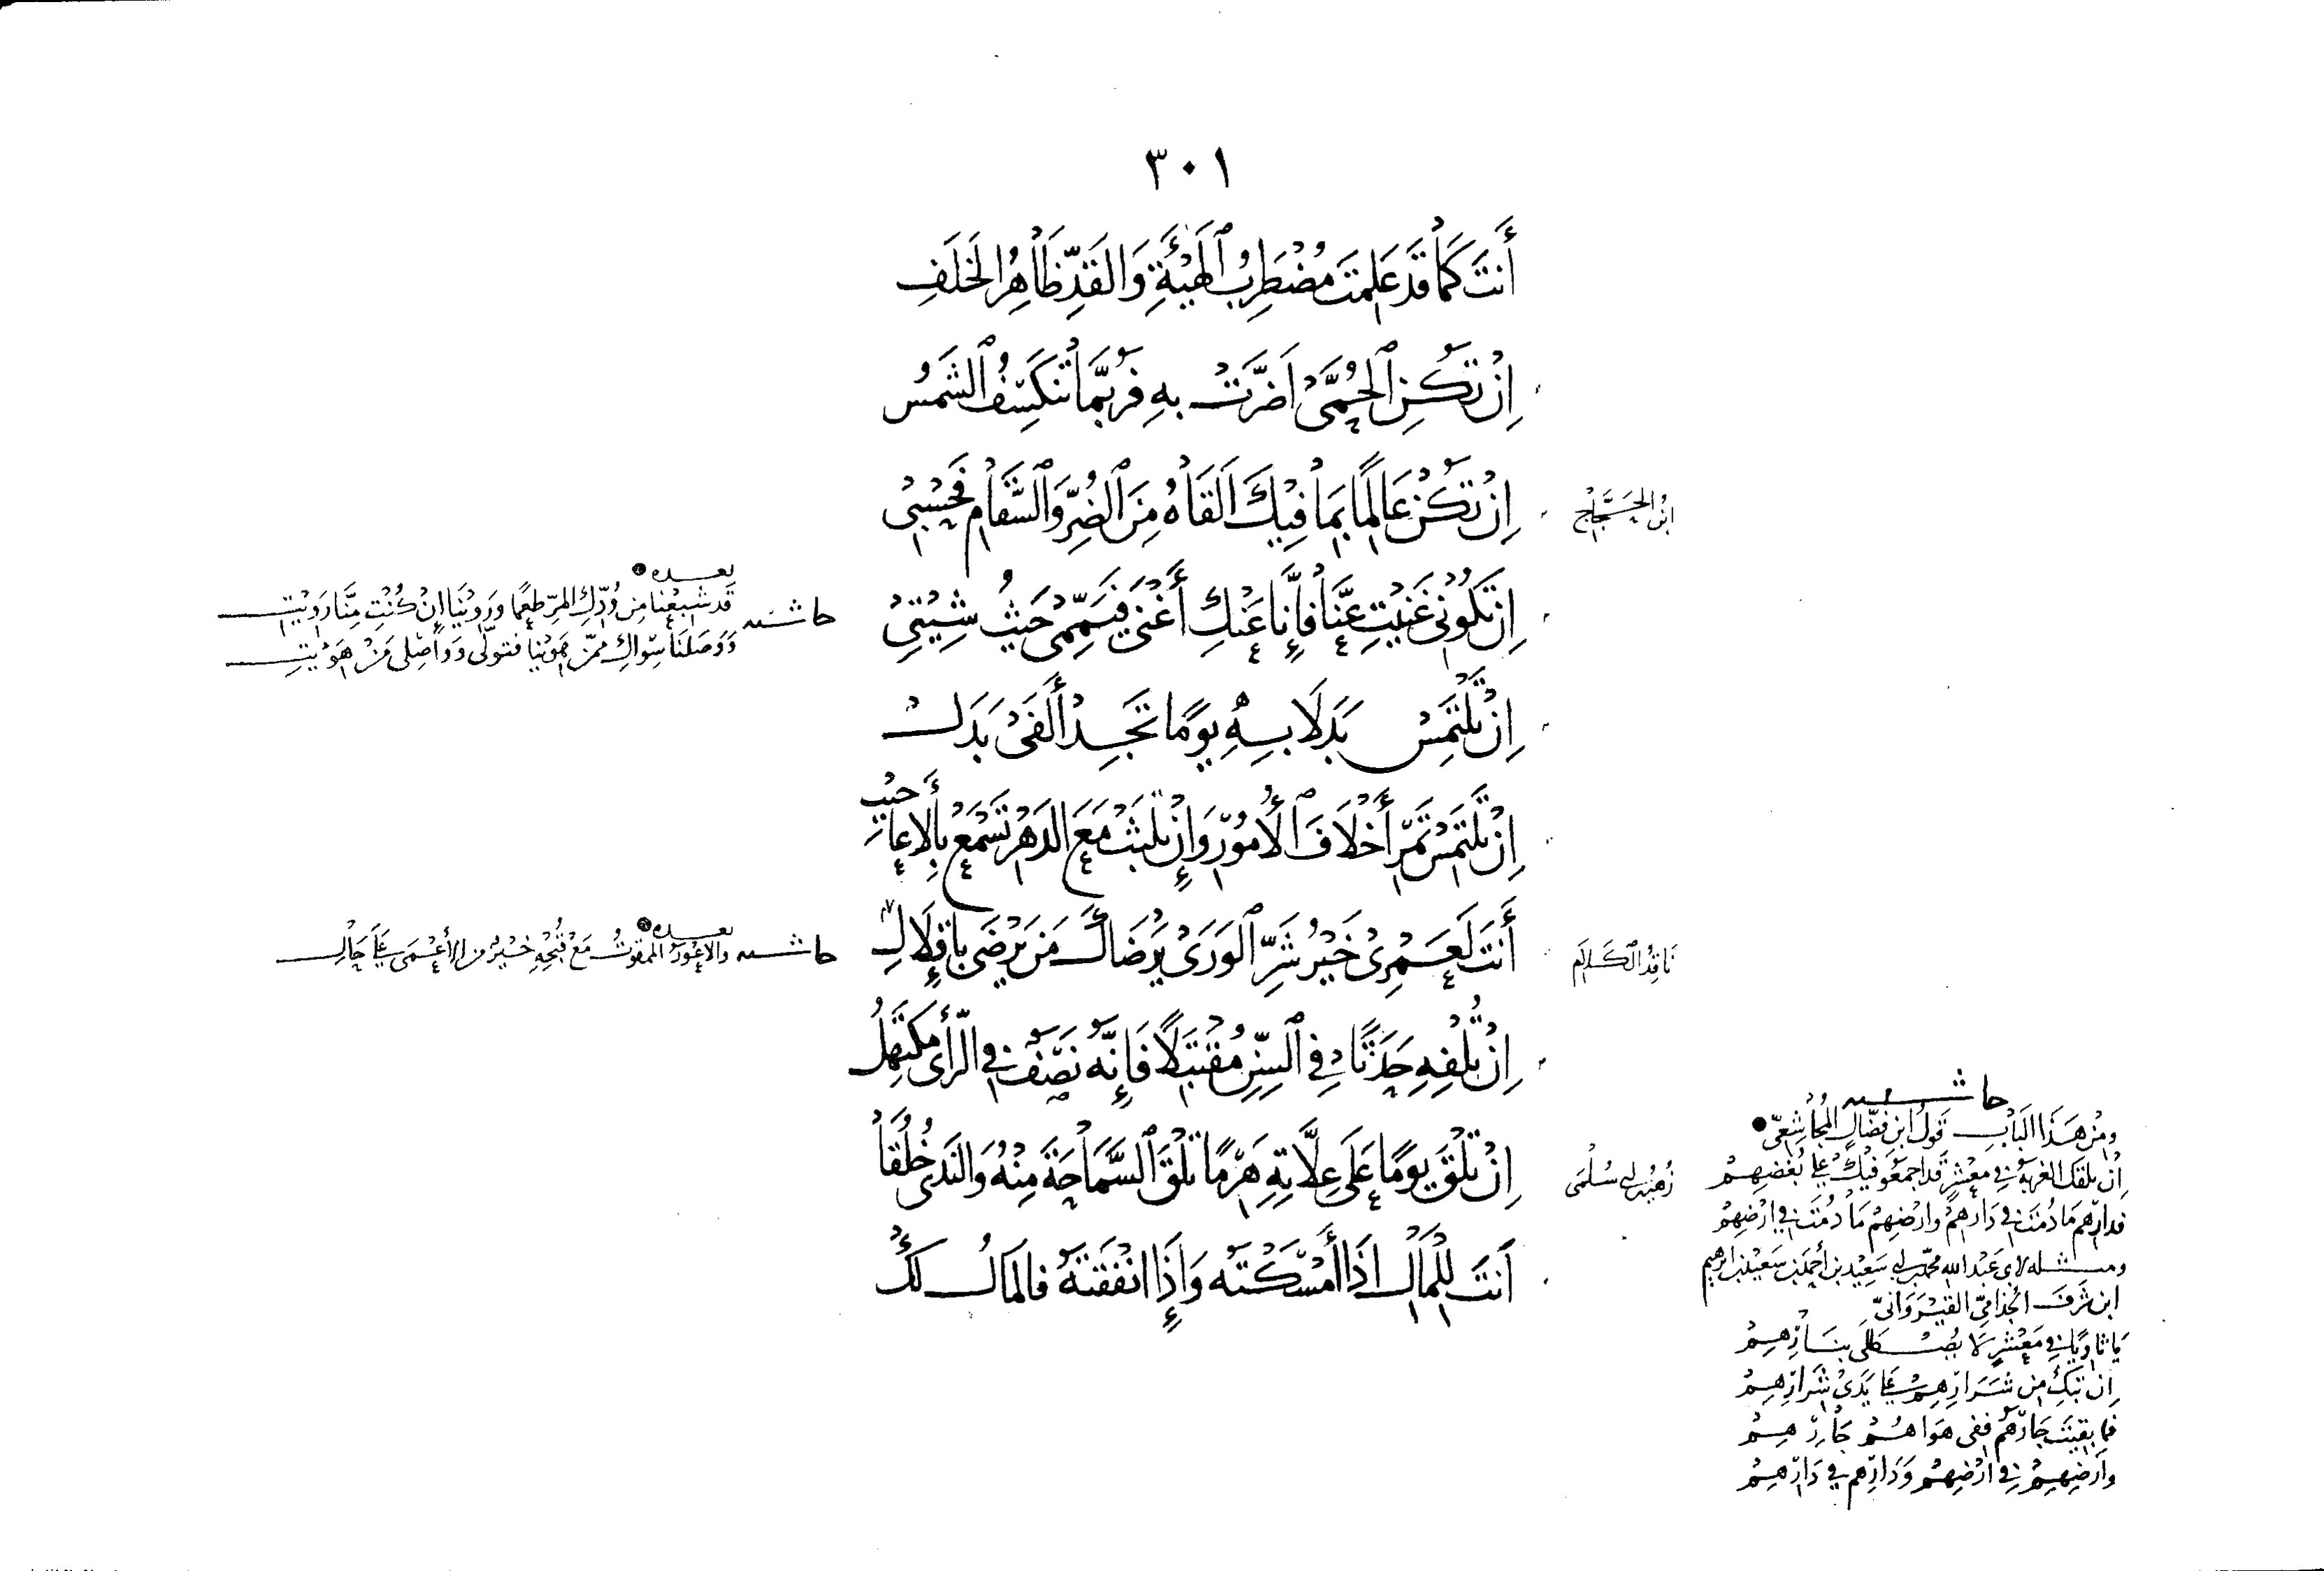 ٣٠١
أَنتَ كَمَا قَد عَلِمتَ مُضْطَرِبُ الهَيْئَةِ وَالقَدِّ ظَاهِرُ الخَلَفِ
اِنْ تَكُنِ الحُمَّىٰ اَضَرَّتْ بهِ فَرُبَّمَا تَنكَسِفُ الشَمْسُ
ابنُ الحَجَّاج
اِنْ تَكُنْ عَالِمًا بِمَا فِيْكَ اَلقَاهُ مِنَ الضُرِّ وَالسَّقَامِ فَحَسْبِيْ
اِنْ تَكُوْنِي غَنِيْتِ عَنَّا فَإِنَّا عَنْكِ أَغْنَى فَيَمِّمِي حَيْثُ شِيْتِيْ
حاشيه
بعده
قَد شَبِعْنَا مِن وُدِّكِ المرِّ طَعمًا وَرَوِيْنَا إنْ كُنْتِ مِنَّا رَوِيْتِ
وَوَصَلنَا سِوَاكِ ممّن هَوِيْنَا فتولّى وَوَاصِلى مَنْ هَوِيتِ
اِنْ تَلْتَمِسْ بَدَلًا بِهِ يَوْمًا تَجِد أَلفَىْ بَدَلْ
اِنْ تَلْتَمِسْ تَمْرِ أَخْلَافَ الأُمُوْرِ وَإِنْ تَلْبَثْ مَعَ الدَهْرِ تَسْمَعْ بِالأَعَاجِيْبِ
نَاقِدُ الكَلَام
أَنتَ لَعَمْرِىْ خَيْرُ شَرِّ الوَرَىْ يَرْضَاكَ مَن يَرْضَى بِإقْلَالِ
حاشيه
بعده
والاعْوَرُ الممقُوتُ مَعْ قُبْحِهِ خَيْرٌ من الأَعْمَى عَلَى حَالِ
اِنْ تُلْفِهِ حَدَثًا فِي السِنِّ مُقْتَبَلًا فَإِنَّهُ نَصَفٌ فِي الرَّأىِ مُكْتَهِلُ
زُهيْر بن ابى سُلْمَى
اِنْ تَلْقَ يَوْمًا عَلَى عِلَّاتِهِ هَرِمًا تَلْقَ السَّمَاحَةَ مِنْهُ وَالنَدَى خُلُقَا
أَنتَ لِلْمَالِ اذَا أَمْسَكْتَهُ وَإِذَا انْفَقْتَهُ فَالمَالُ لَكَ
حاشيه
وَمِنْ هَذَا البَابِ قَولُ ابنِ فَضّالِ المُجَاشِعىّ
اِنْ تلقكَ الغربةُ فِي مَعْشَرٍ قَد اجمَعُو فيكَ على بُغْضِهِمْ
فَدَارِهِم مَا دُمْتَ فِي دَارِهمْ وارْضِهِمْ مَا دُمْتَ فِي ارْضِهِمْ
ومثله لابى عَبْد الله محمّد بن ابى سَعِيْد بن أحمَد بن سَعِيْد بن ابرهيم
ابن شَرَف الجُذَامىّ القَيْرَوَانىّ
يَا ثَاوِيًا فِي مَعْشَرٍ لَا يُصْطَلَى بنَارِهِمْ
اِن تَبْكِ مِن شَرَارِهِمْ عَلى يَدَىْ شِرَارِهِمْ
فما بقيْتَ جَارَهُم ففى هَوَاهُمْ جَارِهِمْ
وَارْضِهِمْ فِي ارْضِهِمْ وَدَارِهِم فِي دَارِهِمْ